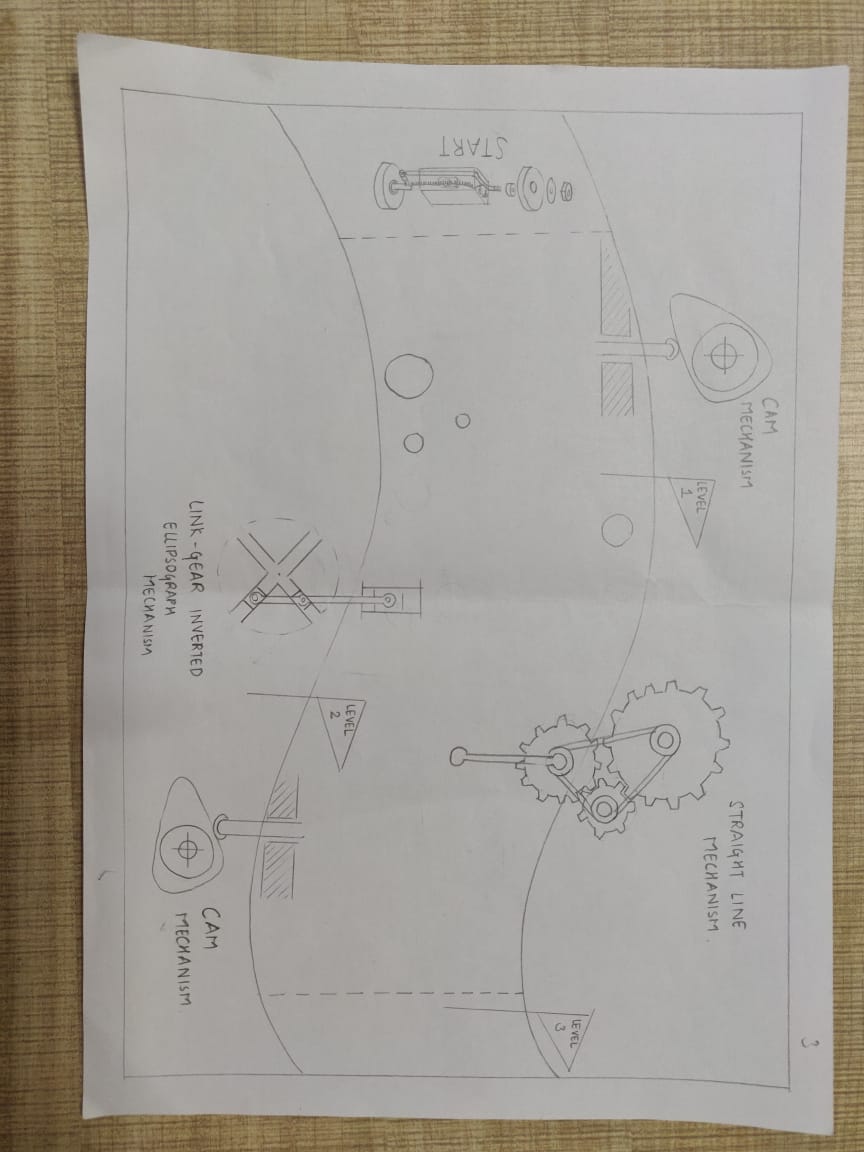 START
CAM
MECHANISM
LEVEL
1
LINK-GEAR INVERTED
ELLIPSOGRAPH
MECHANISM
LEVEL
2
STRAIGHT LINE
MECHANISM.
CAM
MECHANISM
LEVEL
3
3